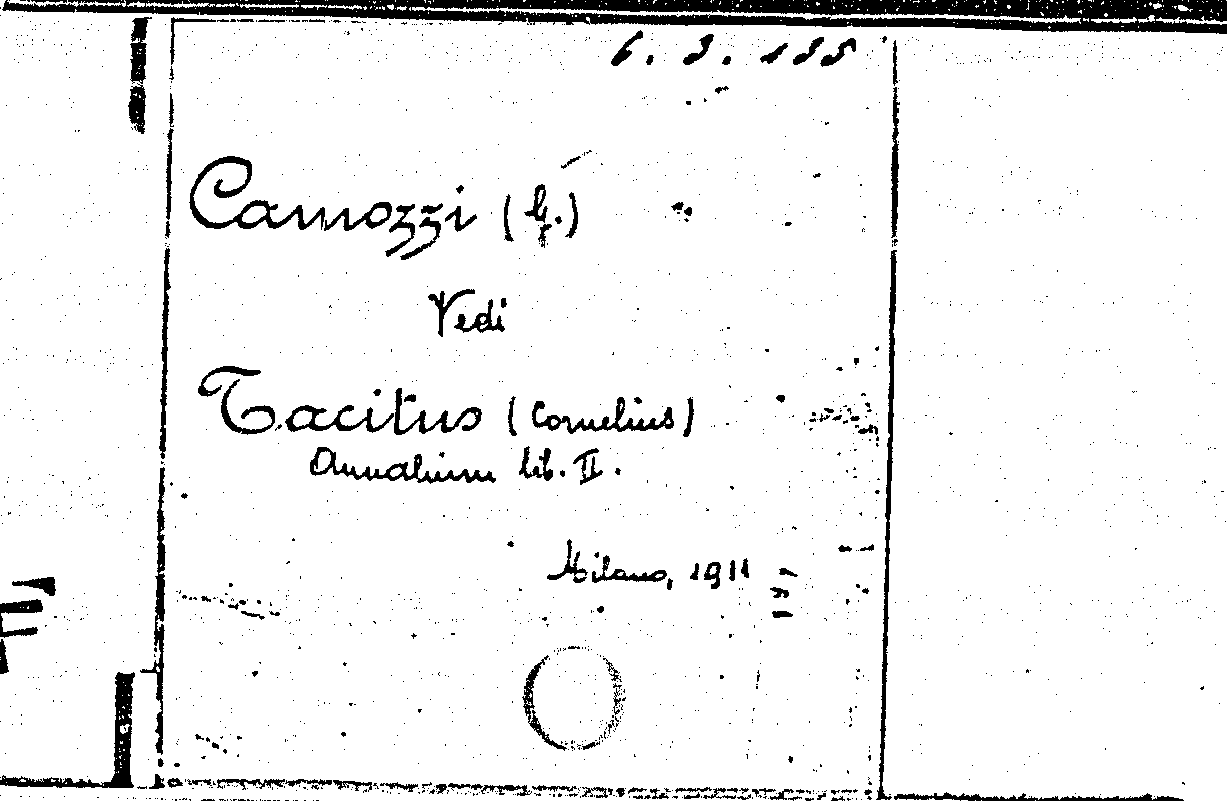 6. 3. 135
Camozzi (G.)
Vedi
Tacitus (Cornelius)
Annalium lib. II.
Milano, 1911